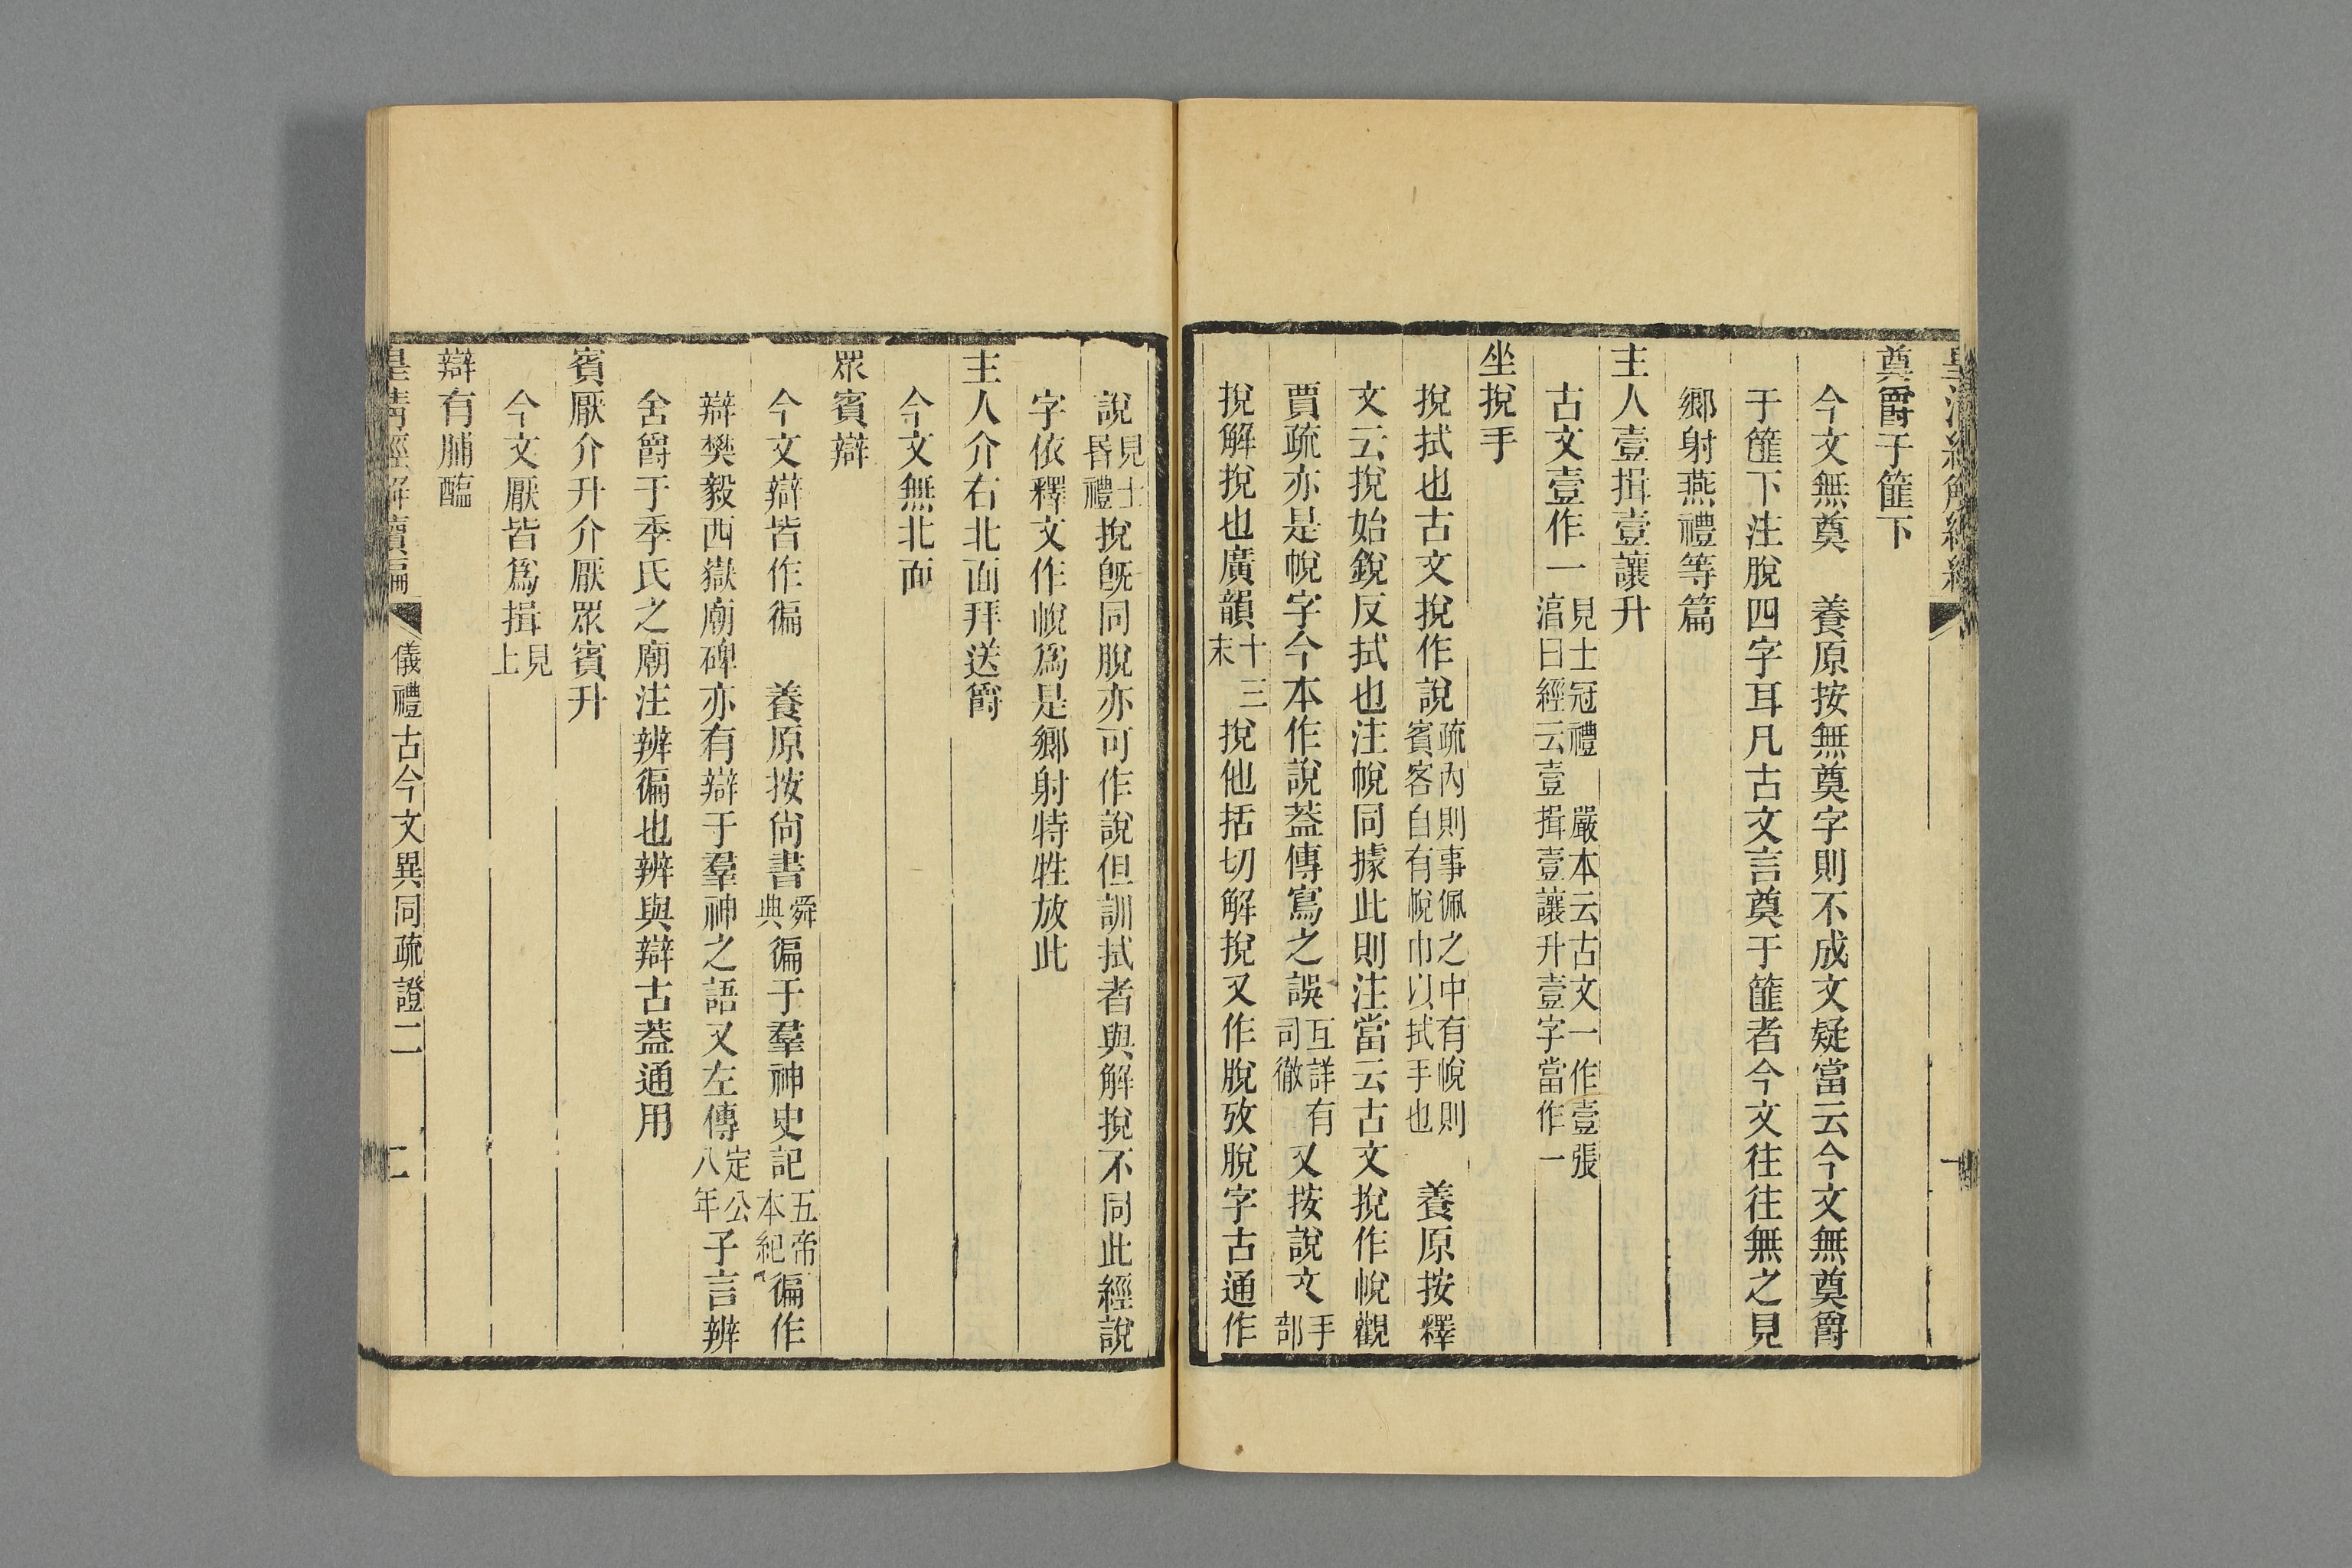 奠爵于篚下
今文無奠　養原按無奠字則不成文疑當云今文無奠爵
于篚下注脫四字耳凡古文言奠于篚者今文往往無之見
鄉射燕禮等篇
主人壹揖壹讓升
古文壹作一見士冠禮　嚴本云古文一作壹張淳曰經云壹揖壹讓升壹字當作一
坐挩手
挩拭也古文挩作說疏內則事佩之中有帨則賓客自有帨巾以拭手也　養原按釋
文云挩始銳反拭也注帨同據此則注當云古文挩作帨觀
賈疏亦是帨字今本作說蓋傳寫之誤互詳有司徹　又按說文手部
挩解挩也廣韻十三末　挩他括切解挩又作脫攷脫字古通作
說見士昏禮挩旣同脫亦可作說但訓拭者與解挩不同此經說
字依釋文作帨爲是鄉射特牲放此
主人介右北面拜送爵
今文無北面
眾賓辯
今文辯皆作徧　養原按尙書舜典徧于羣神史記五帝本紀徧作
辯樊毅西嶽廟碑亦有辯于羣神之語又左傳定公八年子言辨
舍爵于季氏之廟注辨徧也辨與辯古蓋通用
賓厭介升介厭眾賓升
今文厭皆爲揖見上
辯有脯醢
皇清經解續編　儀禮古今文異同疏證二　二